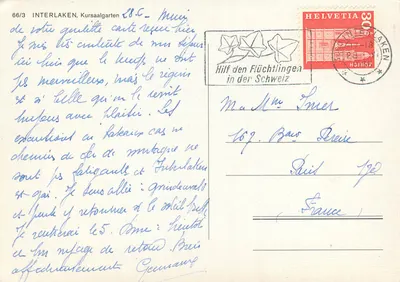 66/3 INTERLAKEN, Kursaalgarten
28.6 - Merci
de votre gentille carte reçue hier
Je suis très contente de mon séjour
ici bien que le temps ne soit
pas merveilleux, mais la région
est si belle qu'on la revoit
toujours avec plaisir. Les
excursions en bateau car ou
chemin de fer de montagne ne
sont pas fatigants et Interlaken
est gai. Je suis allée à Grindelwald
et pense y retourner si le soleil
Je rentrerai le 5. à bientôt
de retour. Bien
affectueusement Germaine
HELVETIA
30
INTERLAKEN
Hilf den Flüchtlingen
in der Schweiz
M et Mme
167.
Paris
France